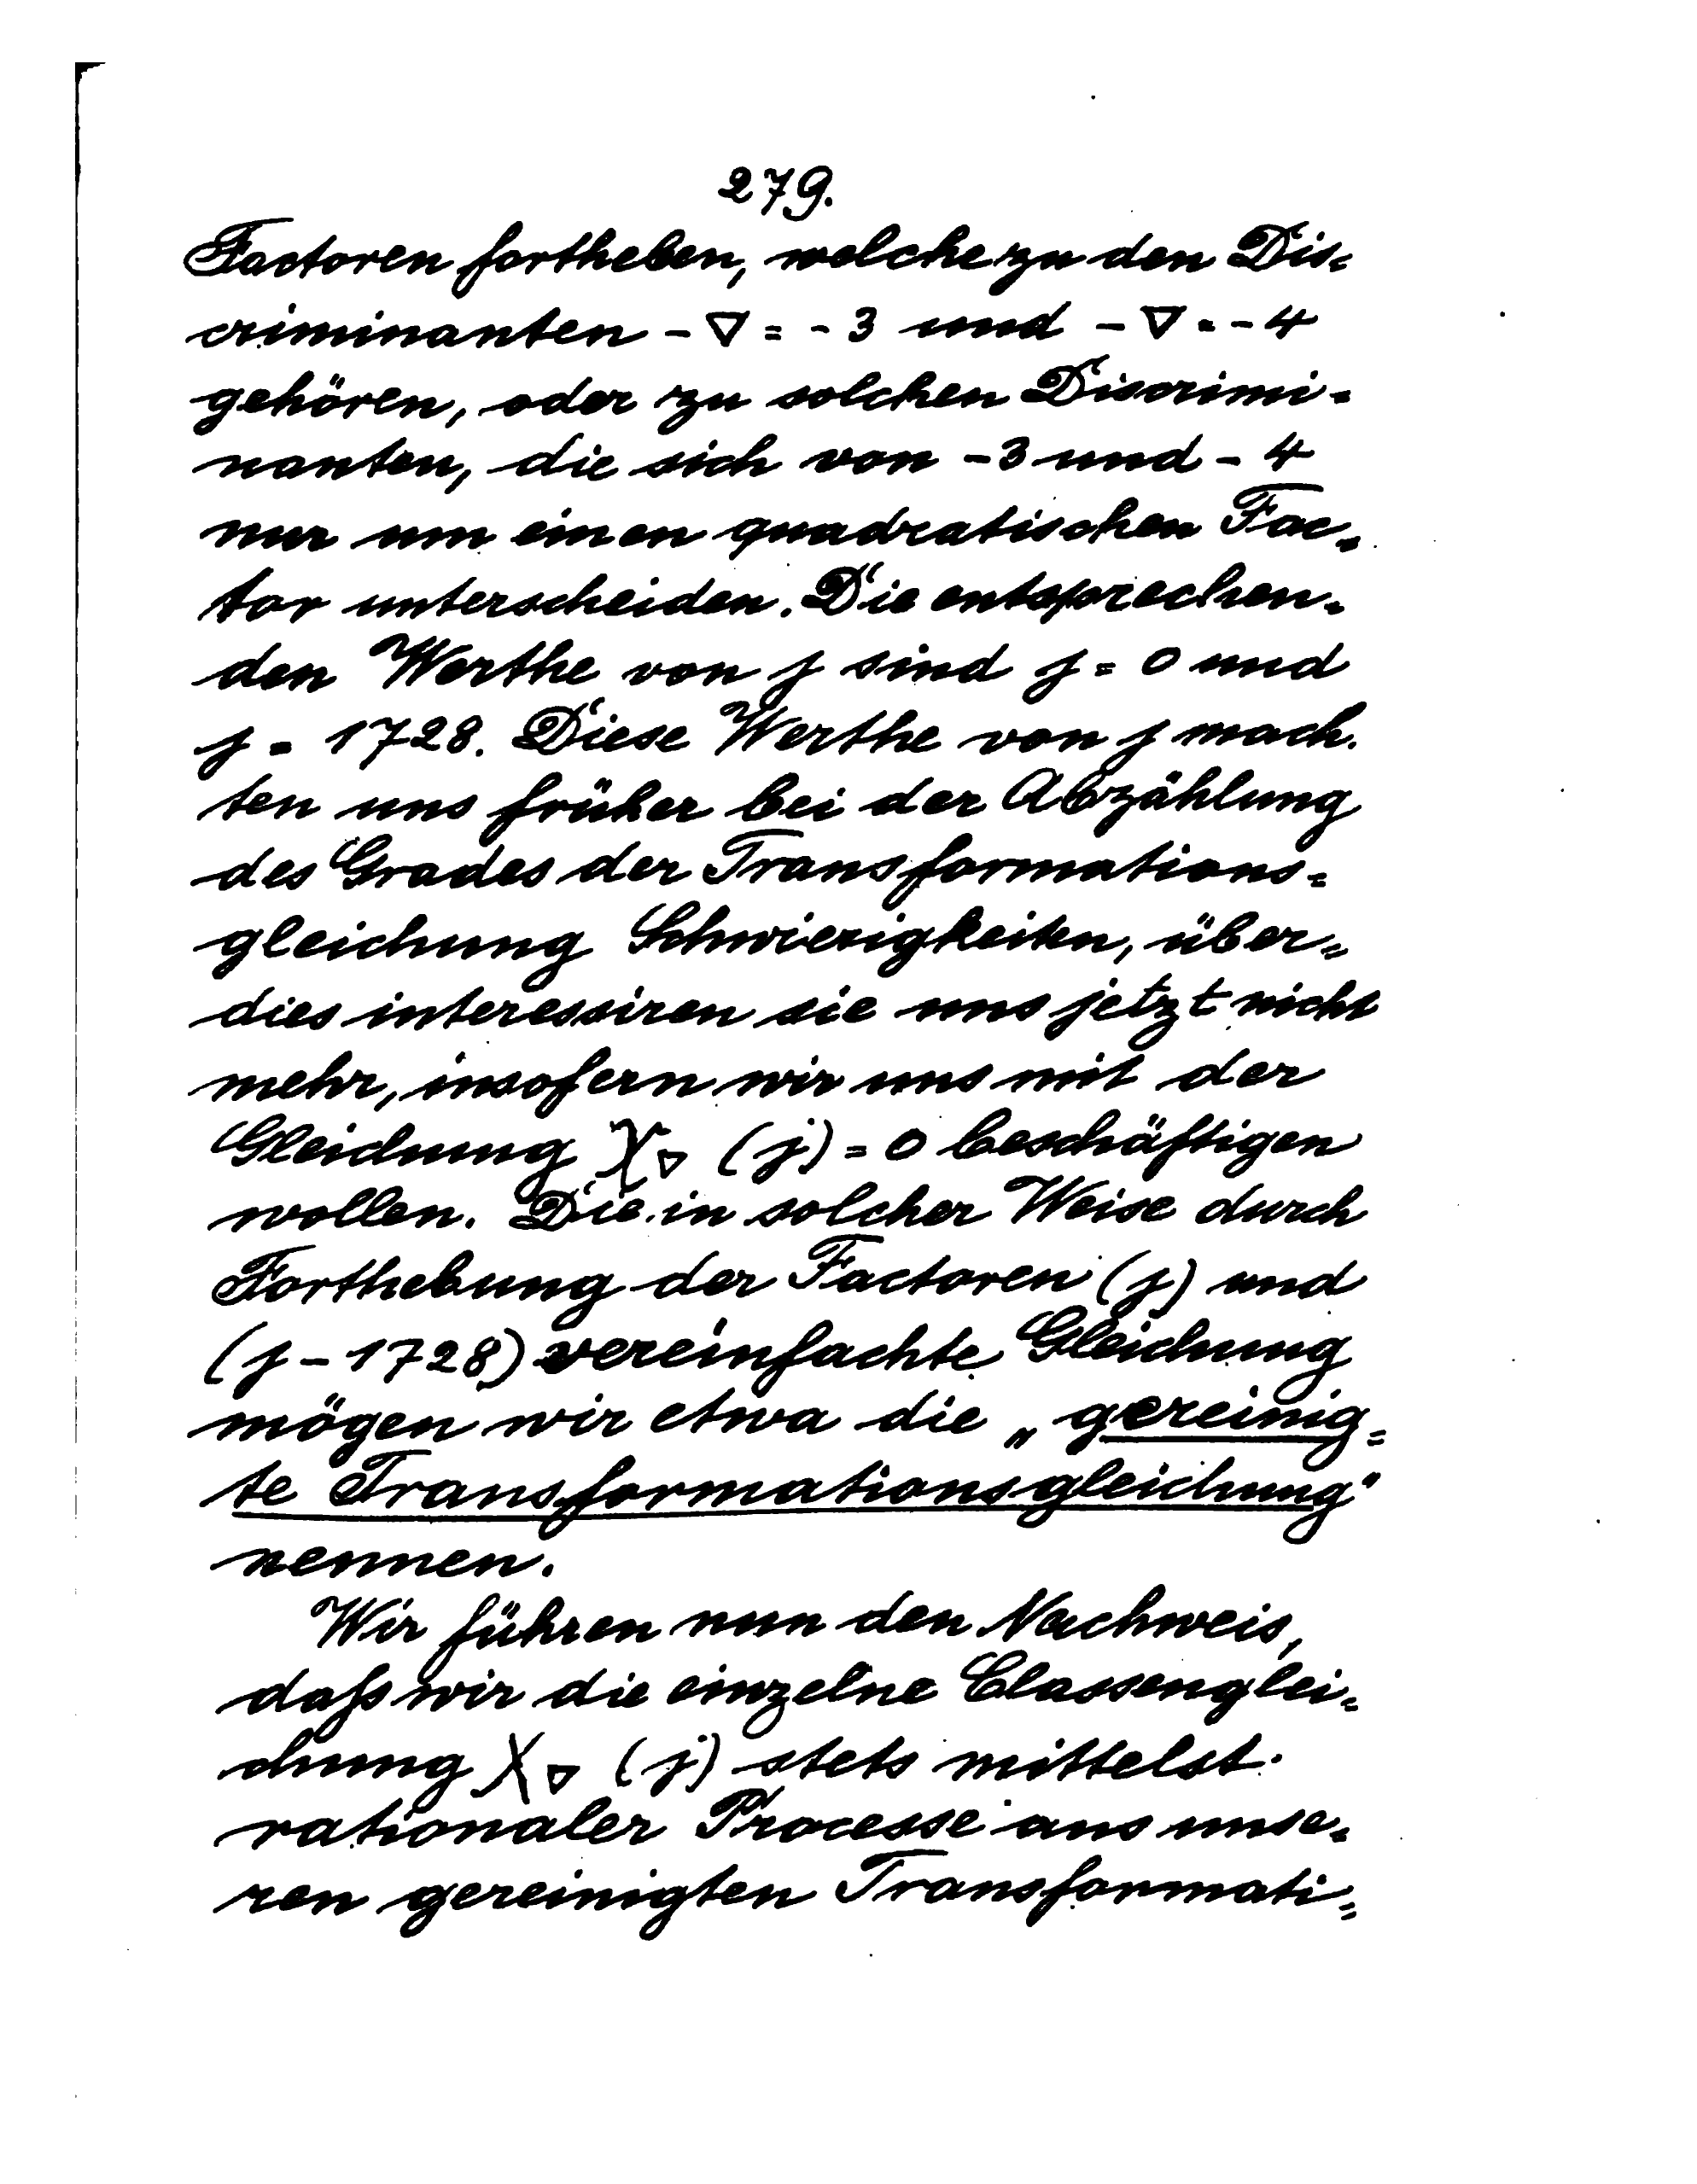 279.
Factoren fortheben, welche zu den Dis=
criminanten - ∇ = - 3 und - ∇ = - 4
gehören, oder zu solchen Discrimi=
nanten, die sich von -3 und - 4
nur um einen quadratischen Fac=
tor unterscheiden. Die entsprechen=
den Werthe von j sind j = 0 und
j = 1728. Diese Werthe von j mach=
ten uns früher bei der Abzählung
des Grades der Transformations=
gleichung Schwierigkeiten, über=
dies interessiren sie uns jetzt nicht
mehr, insofern wir uns mit der
Gleichung χ∇ (j) = 0 beschäftigen
wollen. Die in solcher Weise durch
Forthebung der Factoren (j) und
(j - 1728) vereinfachte Gleichung
mögen wir etwa die „gereinig=
te Transformationsgleichung"
nennen.
Wir führen nun den Nachweis,
daß wir die einzelne Classenglei=
chung χ∇ (j) stets mittelst
rationaler Processe aus unse=
ren gereinigten Transformati=